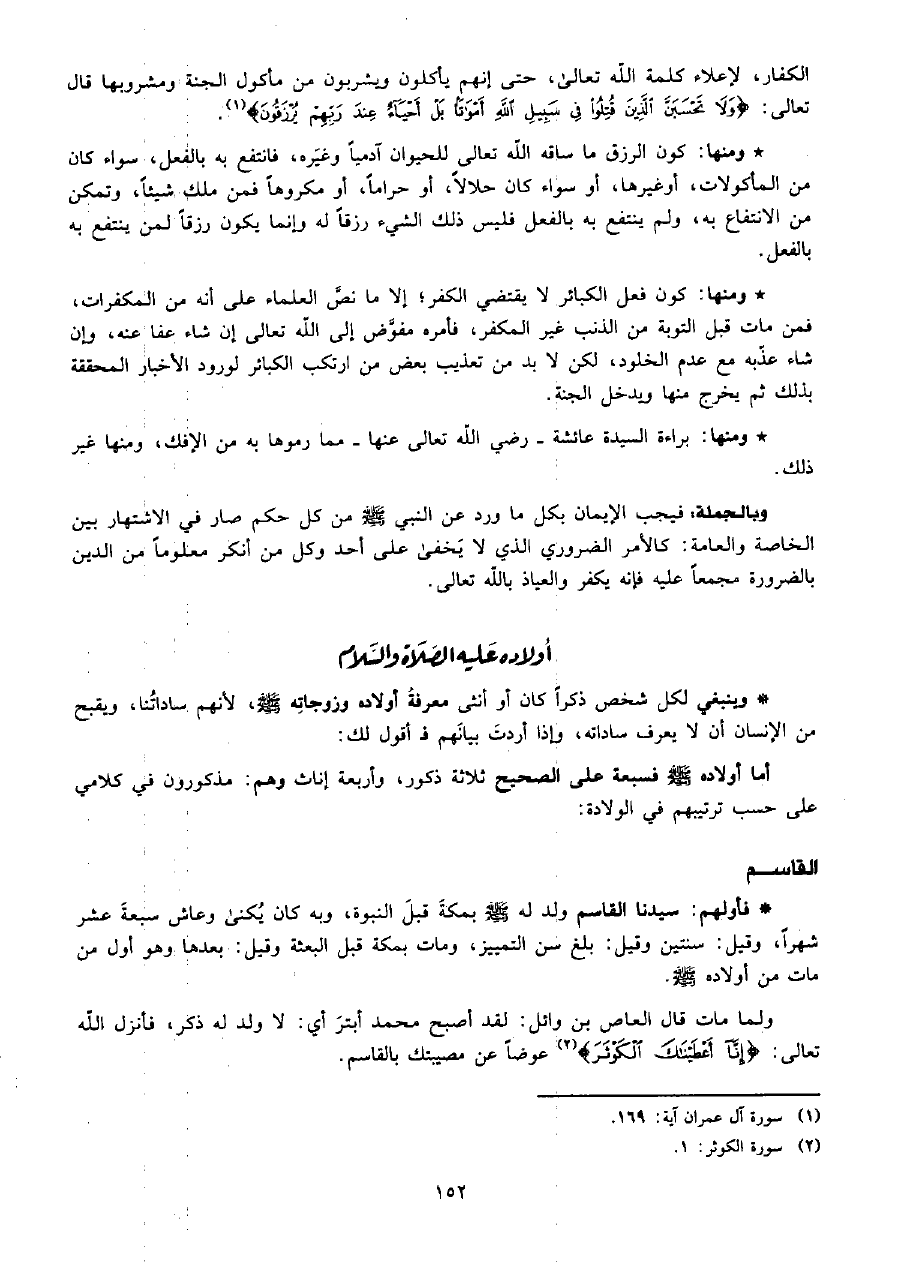 الكفار، لإعلاء كلمة الله تعالىٰ، حتى إنهم يأكلون ويشربون من مأكول الجنة ومشروبها قال
تعالى: ﴿وَلَا تَحْسَبَنَّ ٱلَّذِينَ قُتِلُوا۟ فِى سَبِيلِ ٱللَّهِ أَمْوَٰتًۢا بَلْ أَحْيَآءٌ عِندَ رَبِّهِمْ يُرْزَقُونَ﴾(١).
★ ومنها: كون الرزق ما ساقه الله تعالى للحيوان آدمياً وغيَره، فانتفع به بالفعل، سواء كان
من المأكولات، أوغيرها، أو سواء كان حلالاً، أو حراماً، أو مكروهاً فمن ملك شيئاً، وتمكن
من الانتفاع به، ولم ينتفع به بالفعل فليس ذلك الشيء رزقاً له وإنما يكون رزقاً لمن ينتفع به
بالفعل.
★ ومنها: كون فعل الكبائر لا يقتضي الكفر؛ إلا ما نصَّ العلماء على أنه من المكفرات،
فمن مات قبل التوبة من الذنب غير المكفر، فأمره مفوَّض إلى الله تعالى إن شاء عفا عنه، وإن
شاء عذّبه مع عدم الخلود، لكن لا بد من تعذيب بعض من ارتكب الكبائر لورود الأخبار المحققة
بذلك ثم يخرج منها ويدخل الجنة.
★ ومنها: براءة السيدة عائشة ـ رضي الله تعالى عنها ـ مما رموها به من الإفك، ومنها غير
ذلك.
وبالجملة؛ فيجب الإيمان بكل ما ورد عن النبي ﷺ من كل حكم صار في الاشتهار بين
الخاصة والعامة: كالأمر الضروري الذي لا يَخفىٰ على أحد وكل من أنكر معلوماً من الدين
بالضرورة مجمعاً عليه فإنه يكفر والعياذ بالله تعالى.
أولاده عَليه الصَّلَاة والسَّلام
★ وينبغي لكل شخص ذكراً كان أو أنثى معرفةُ أولاده وزوجاتِه ﷺ، لأنهم ساداتُنا، ويقبح
من الإنسان أن لا يعرف ساداته، وإذا أردتَ بيانَهم فـ أقول لك:
أما أولاده ﷺ فسبعة على الصحيح ثلاثة ذكور، وأربعة إناث وهم: مذكورون في كلامي
على حسب ترتيبهم في الولادة:
القاسـم
★ فأولهم: سيدنا القاسم ولد له ﷺ بمكةَ قبلَ النبوة، وبه كان يُكنىٰ وعاش سبعةَ عشر
شهراً، وقيل: سنتين وقيل: بلغ سن التمييز، ومات بمكة قبل البعثة وقيل: بعدها وهو أول من
مات من أولاده ﷺ.
ولما مات قال العاص بن وائل: لقد أصبح محمد أبترَ أي: لا ولد له ذكر، فأنزل الله
تعالى: ﴿إِنَّآ أَعْطَيْنَٰكَ ٱلْكَوْثَرَ﴾(٢) عوضاً عن مصيبتك بالقاسم.
(١) سورة آل عمران آية: ١٦٩.
(٢) سورة الكوثر: ١.
١٥٢